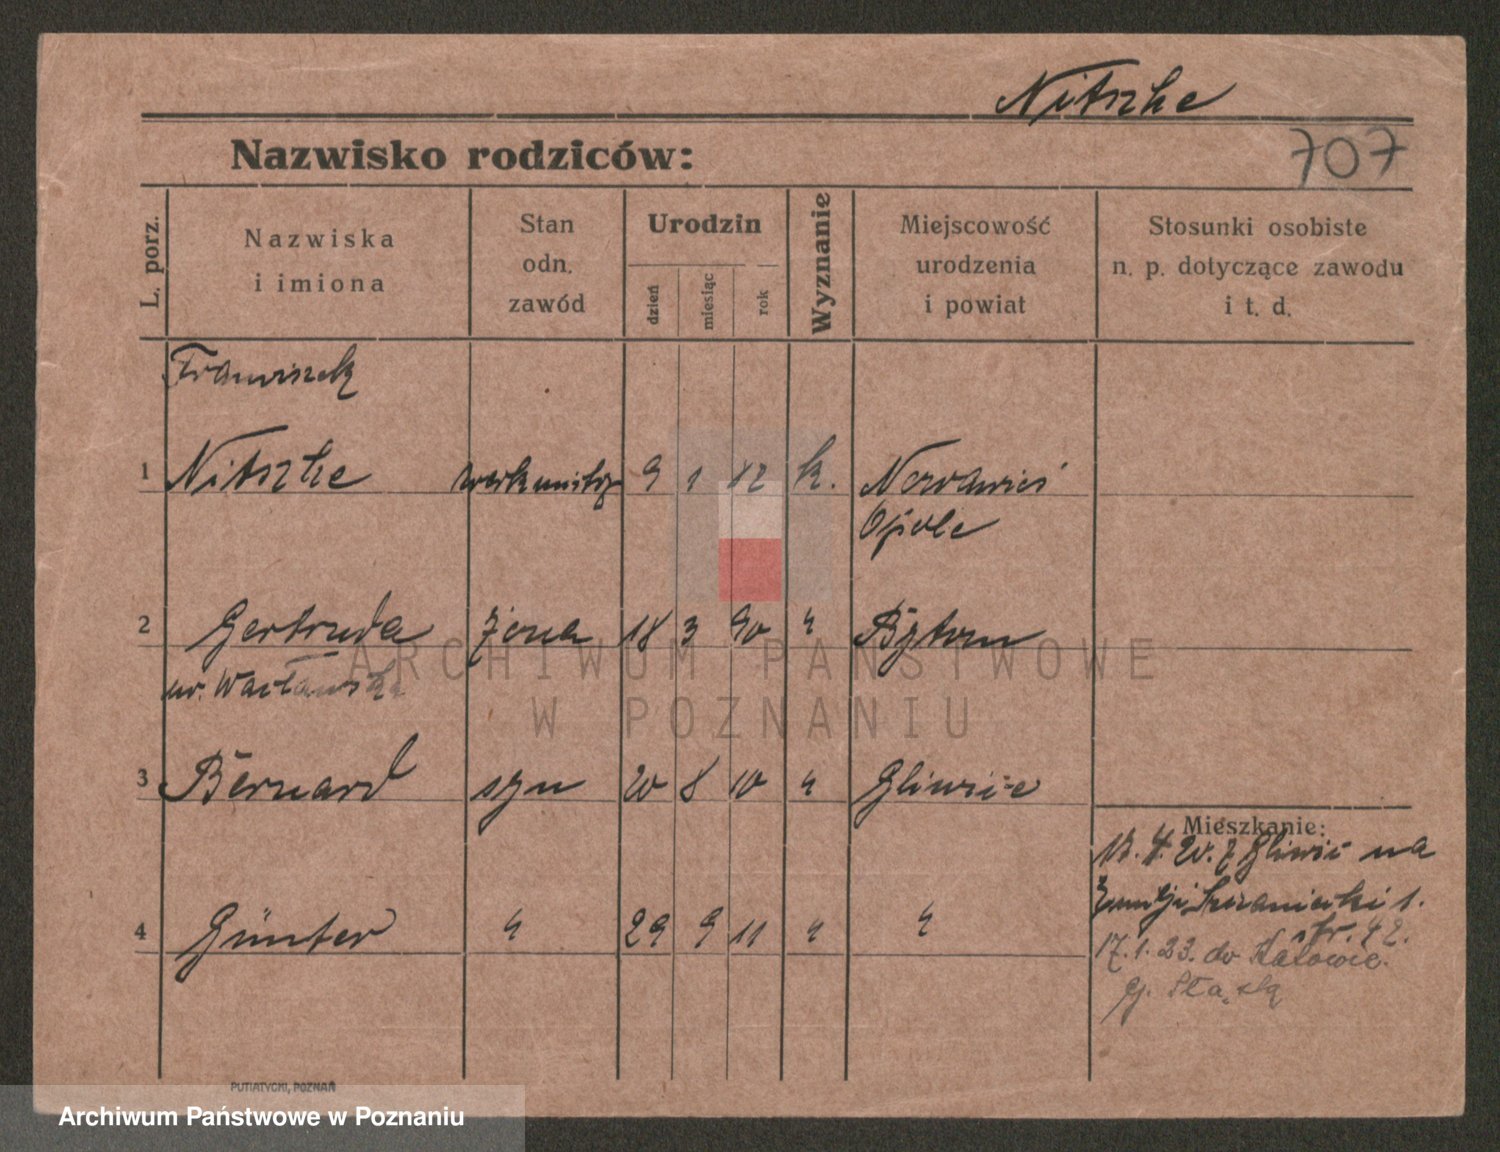 Nitszke
Nazwisko rodziców:
707
L. porz.
Nazwiska
i imiona
Stan
odn.
zawód
Urodzin
dzień
miesiąc
rok
Wyznanie
Miejscowość
urodzenia
i powiat
Stosunki osobiste
n. p. dotyczące zawodu
i t. d.
Franciszek
1 Nitszke 9 1 82 k. Nowawieś
Opole
2 Gertruda żona 18 3 90 " Bytom
ur.
3 Bernard syn 20 8 10 " Gliwice
Mieszkanie:
13. 4. 20. z Gliwic na
4 Günter " 29 9 11 " "
Emilji Sczanieckiej
str. 42.
17.1.23. do Katowic.
G. Śląsk
ARCHIWUM PAŃSTWOWE
W POZNANIU
PUTIATYCKI, POZNAŃ
Archiwum Państwowe w Poznaniu